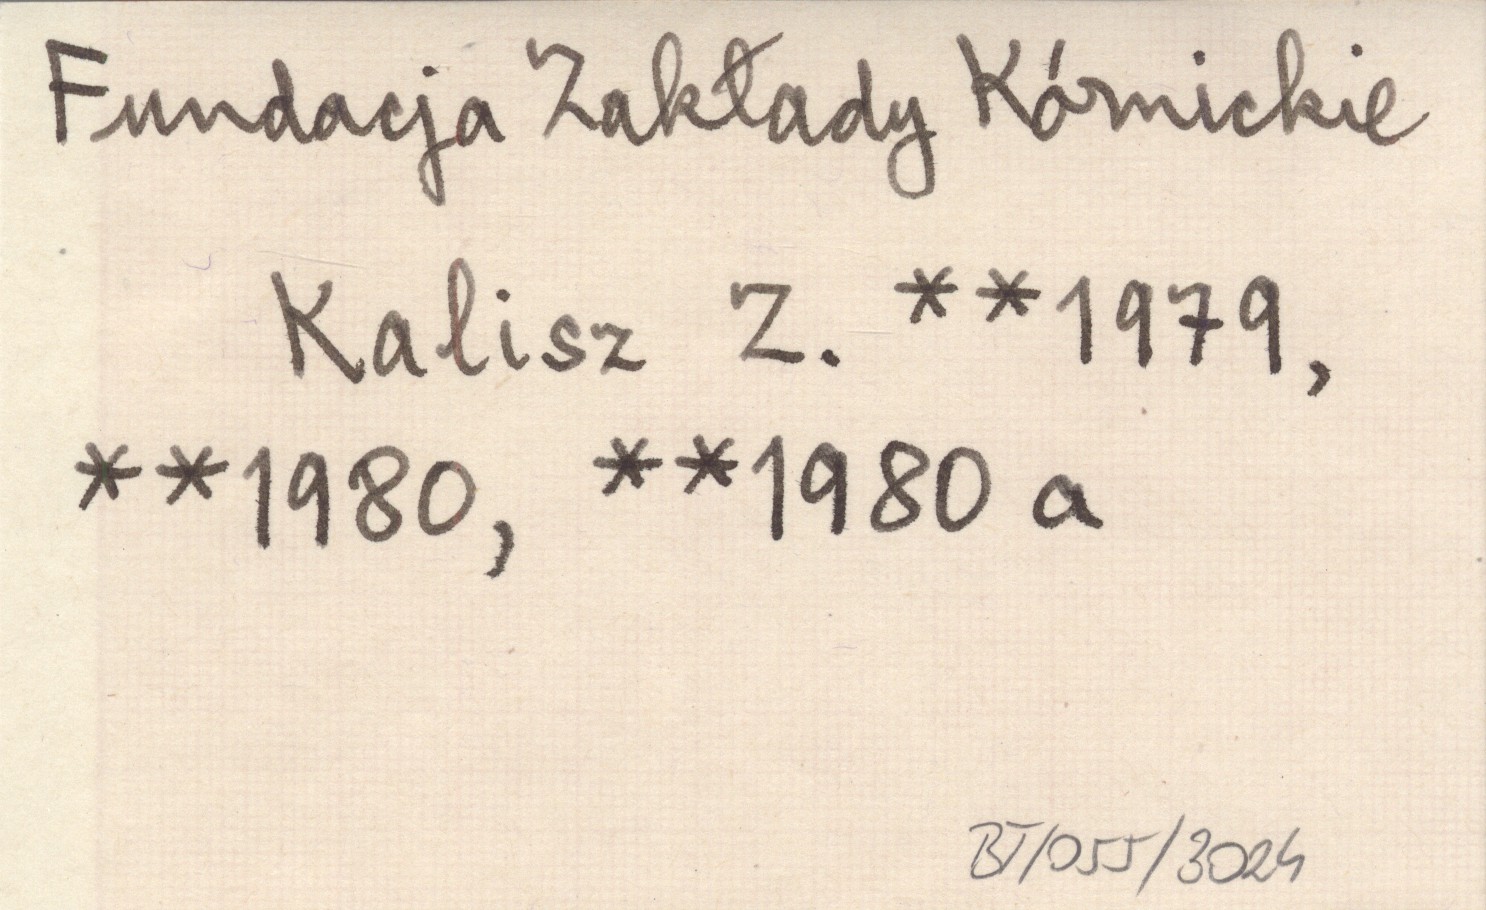 Fundacja Zakłady Kórnickie
Kalisz Z. **1979,
**1980, **1980 a
BT/055/3024